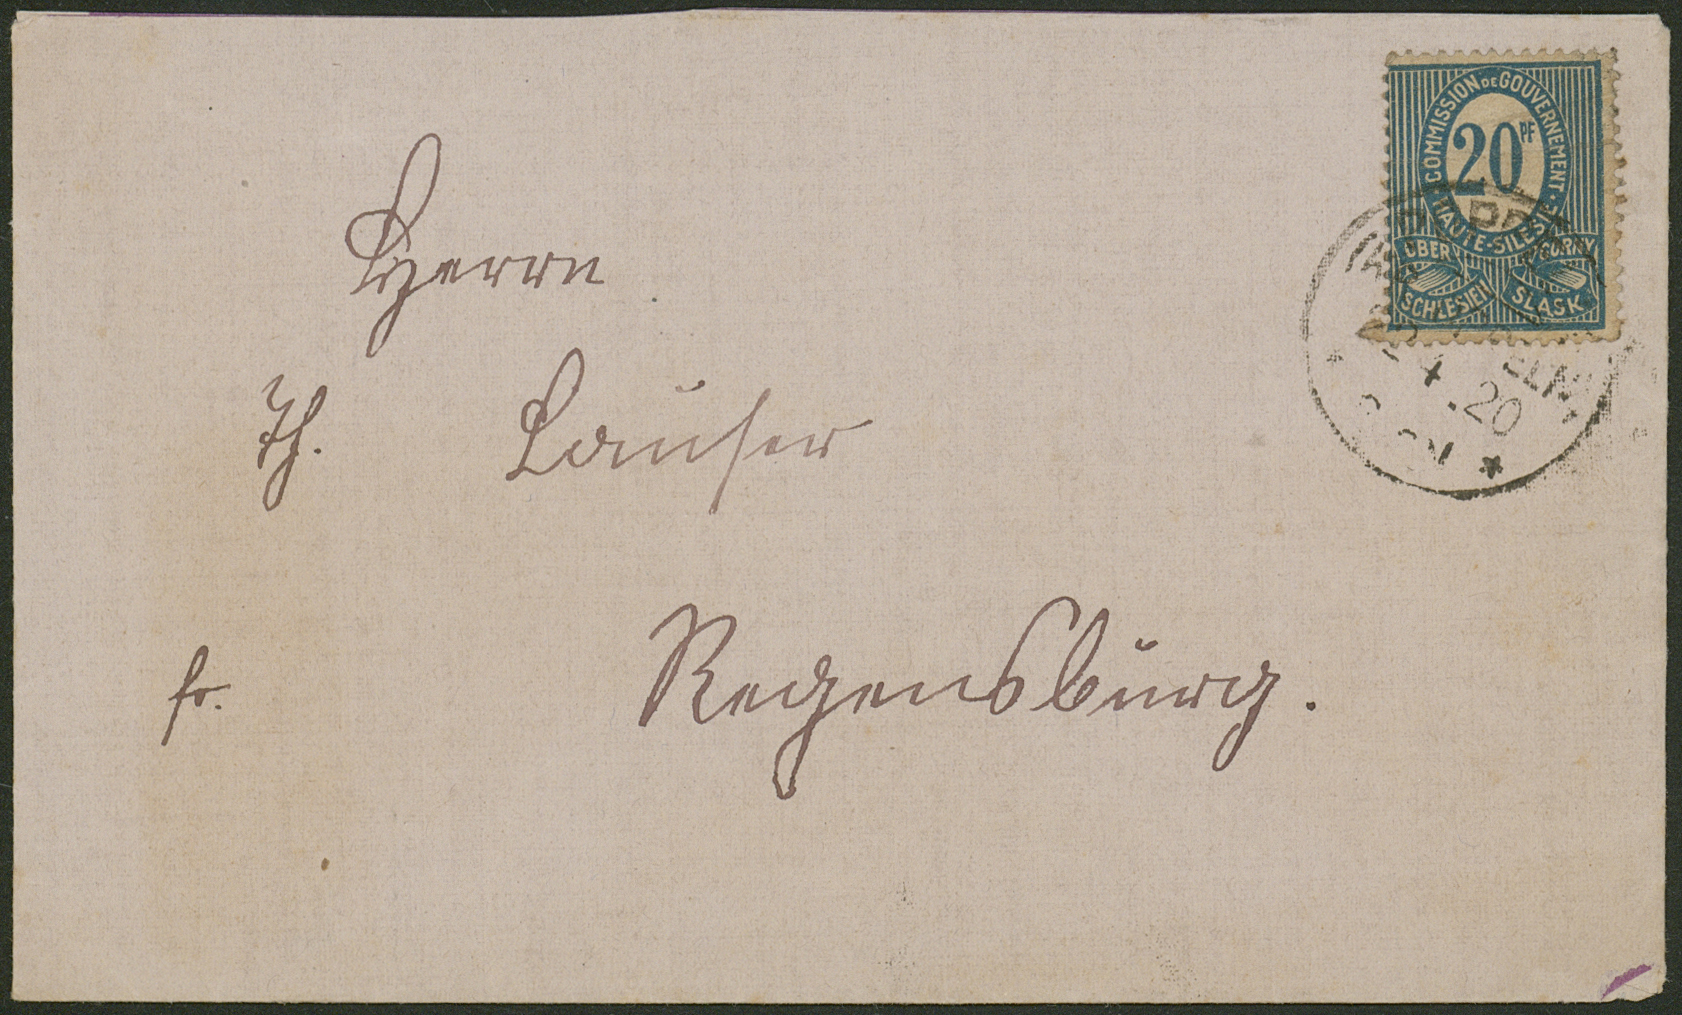 COMMISSION DE GOUVERNEMENT · HAUTE-SILESIE
20 PF
OBER SCHLESIEN
GORNY SLASK
4.20
Herrn
Th. Lauser
Regensburg.
fr.